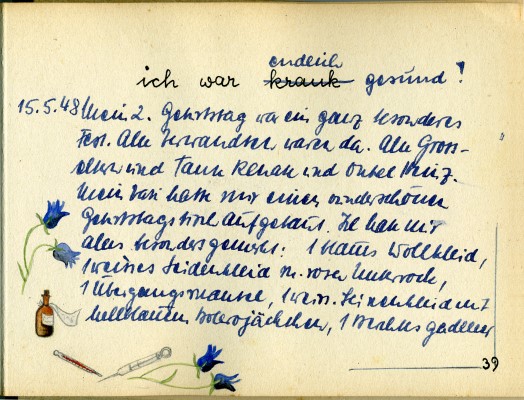 endlich
ich war krank gesund!
15.5.48 Mein 2. Geburtstag war ein ganz besonderes
Fest. Alle Verwandten waren da. Alle Gross-
eltern und Tante Renate und Onkel Heinz.
Mein Vati hatte mir einen wunderschönen
Geburtstagstisch aufgebaut. Ich hatte mir
alles besonders gewünscht: 1 blaues Wollkleid,
1 weisses Seidenkleid m. rosa Unterrock,
1 Übergangsmantel, 1 weiss. Leinenkleid mit
hellblauem Bolerojäckchen, 1
39